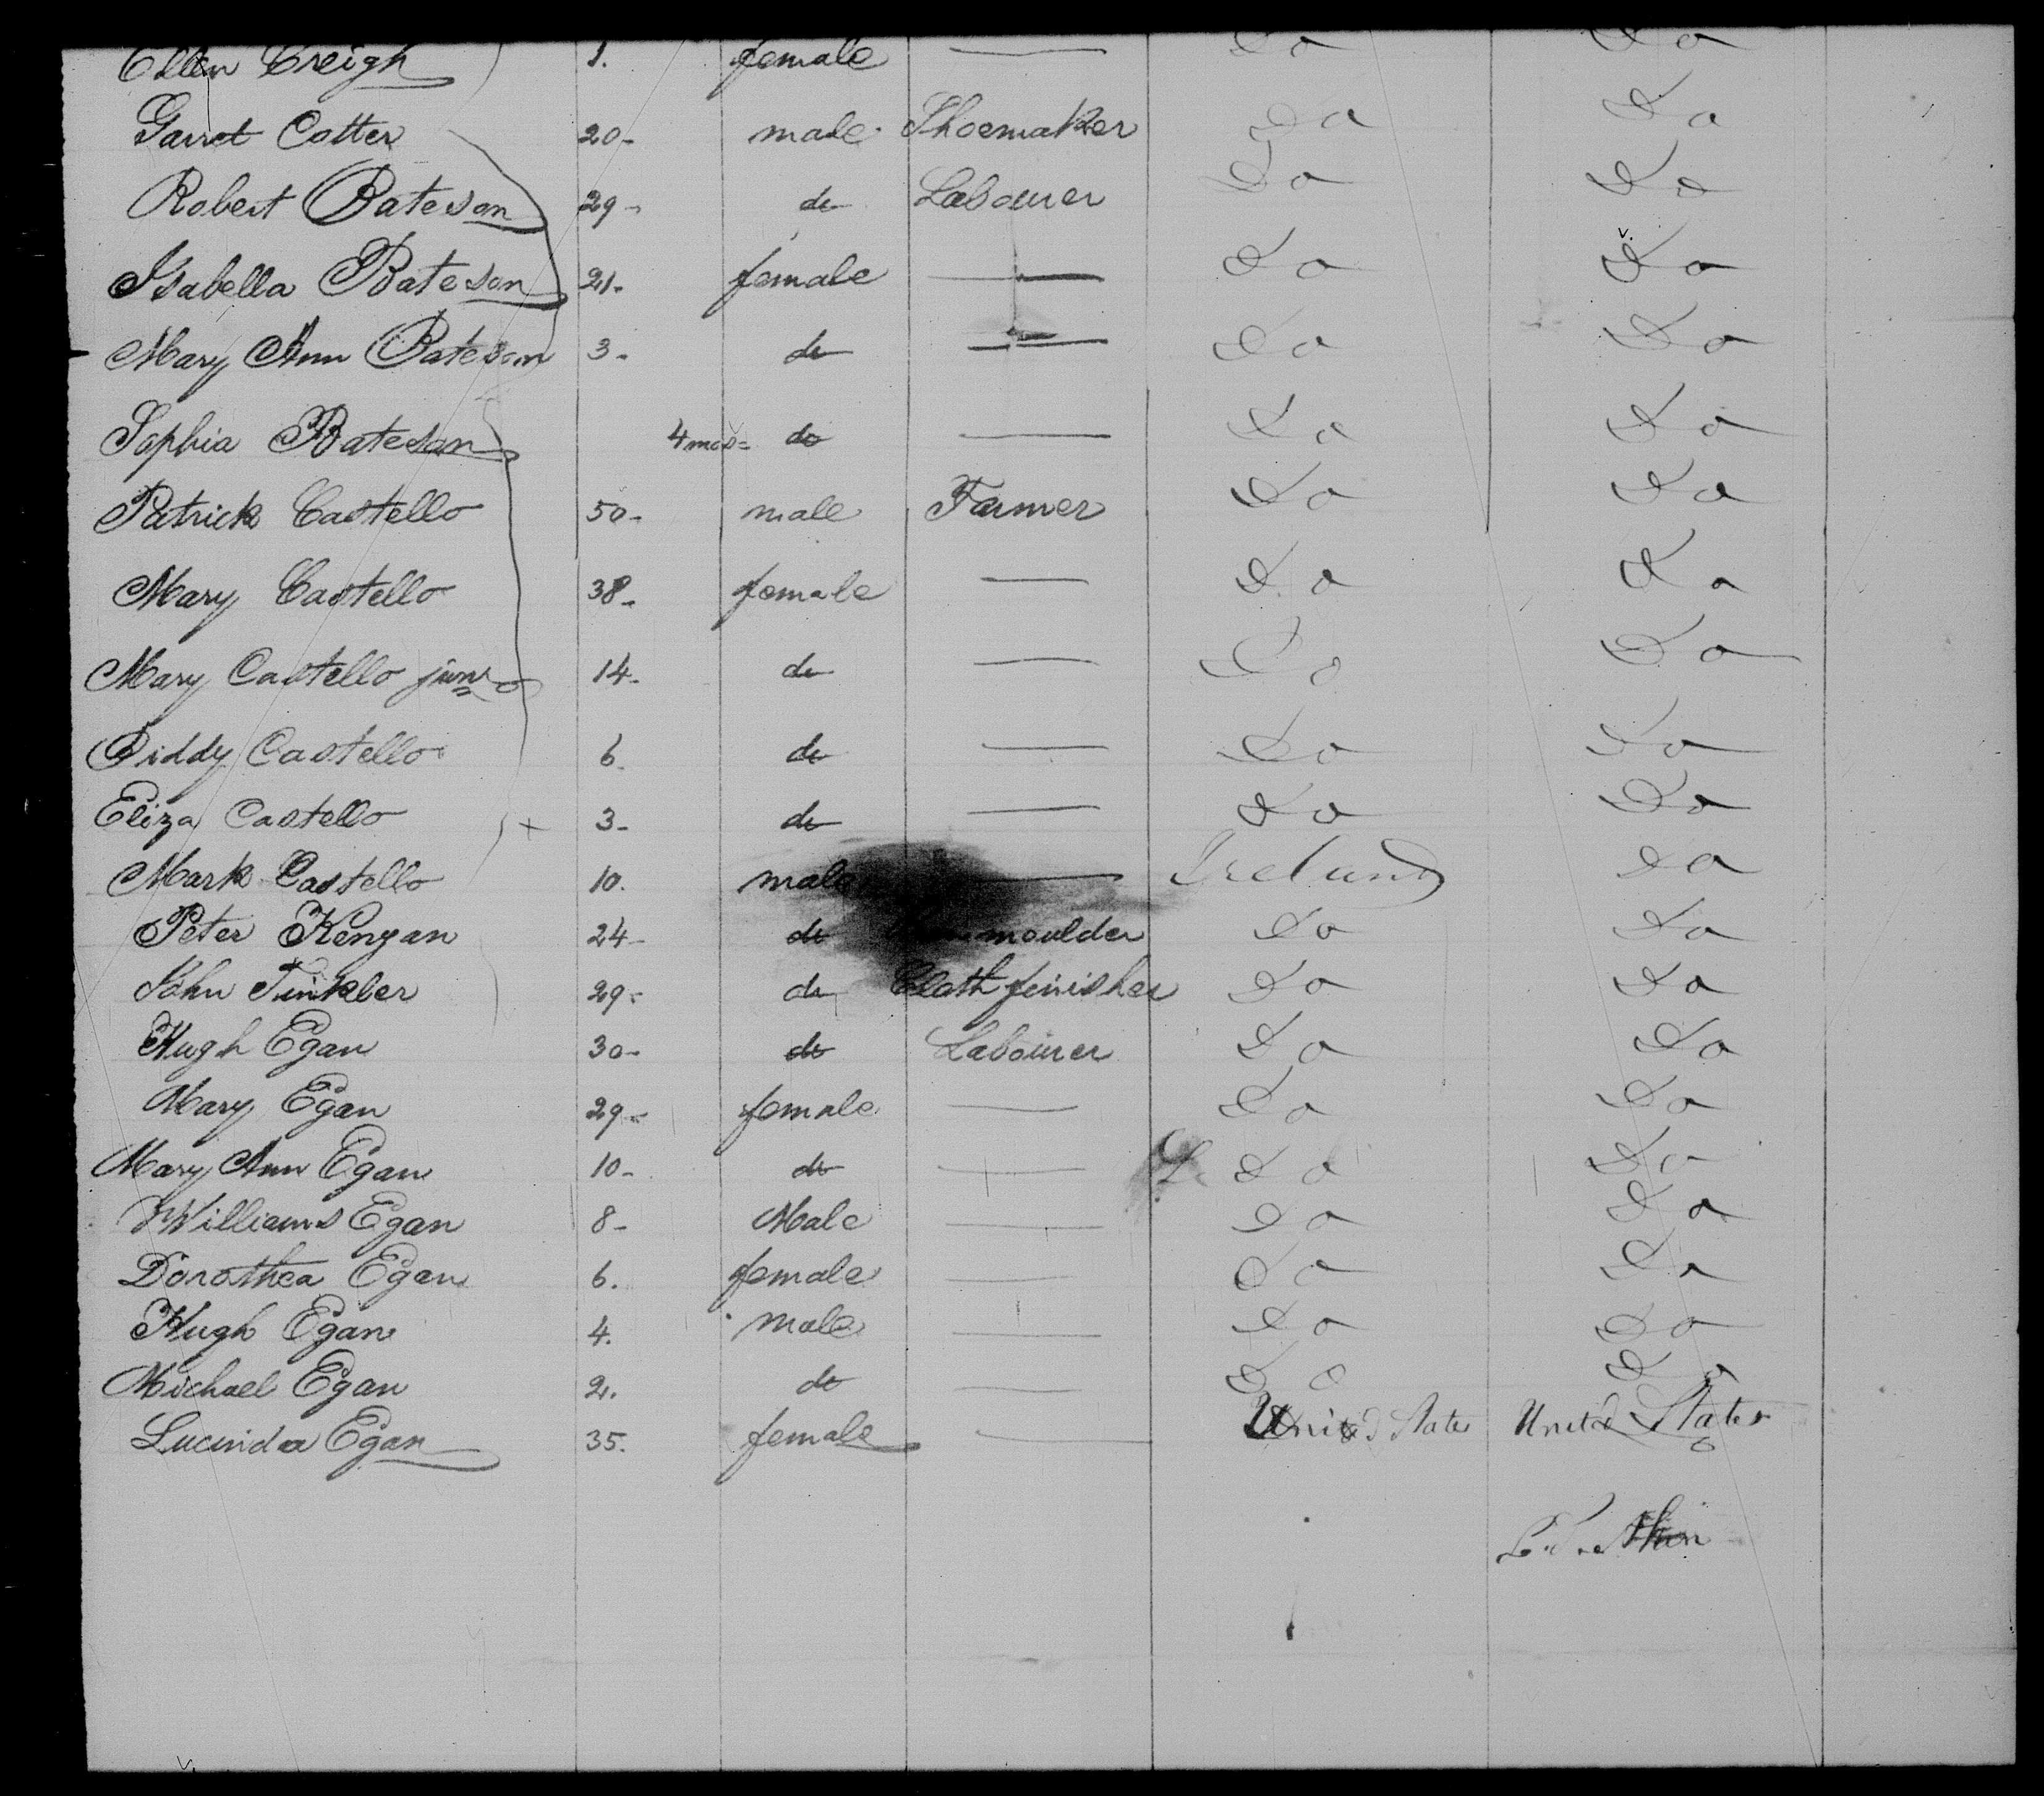 Ellen Creigh 1. female — Do Do
Garret Cotter 20- male Shoemaker Do Do
Robert Bateson 29- do Labourer Do Do
Isabella Bateson 21- female — Do Do
Mary Ann Bateson 3- do — Do Do
Sophia Bateson 4 mos= do — Do Do
Patrick Castello 50- male Farmer Do Do
Mary Castello 38- female — Do Do
Mary Castello junr 14- do — Do Do
Biddy Castello 6 do — Do Do
Eliza Castello + 3- do — Do Do
Mark Castello 10. male — Ireland Do
Peter Kenyan 24- do moulder Do Do
John Tinkler 29- do Cloth finisher Do Do
Hugh Egan 30- do Labourer Do Do
Mary Egan 29- female — Do Do
Mary Ann Egan 10- do — Do Do
Williams Egan 8- Male — Do Do
Dorothea Egan 6. female — Do Do
Hugh Egan 4. male — Do Do
Michael Egan 2. do — Do Do
Lucinda Egan 35. female — Unitd States Unitd States